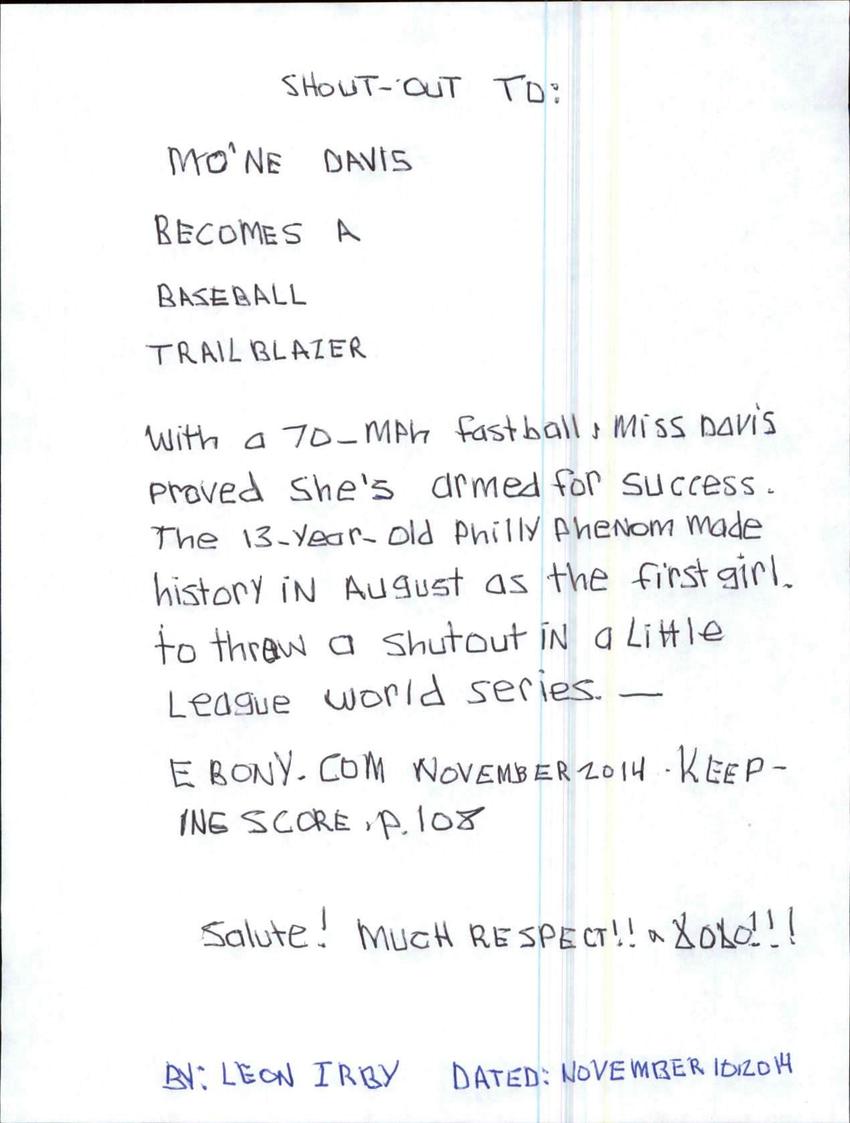 SHOUT-OUT TO:
MO'NE DAVIS
BECOMES A
BASEBALL
TRAILBLAZER
With a 70-MPh fastball, Miss DAVIS
Proved She's armed for success.
The 13-year-old Philly Phenom made
history in August as the first girl.
to threw a shutout in a Little
League world series. —
EBONY.COM NOVEMBER 2014 . KEEP-
ING SCORE, P. 108
Salute! MUCH RESPECT!! XOXO!!!
BY: LEON IRBY DATED: NOVEMBER 10, 2014